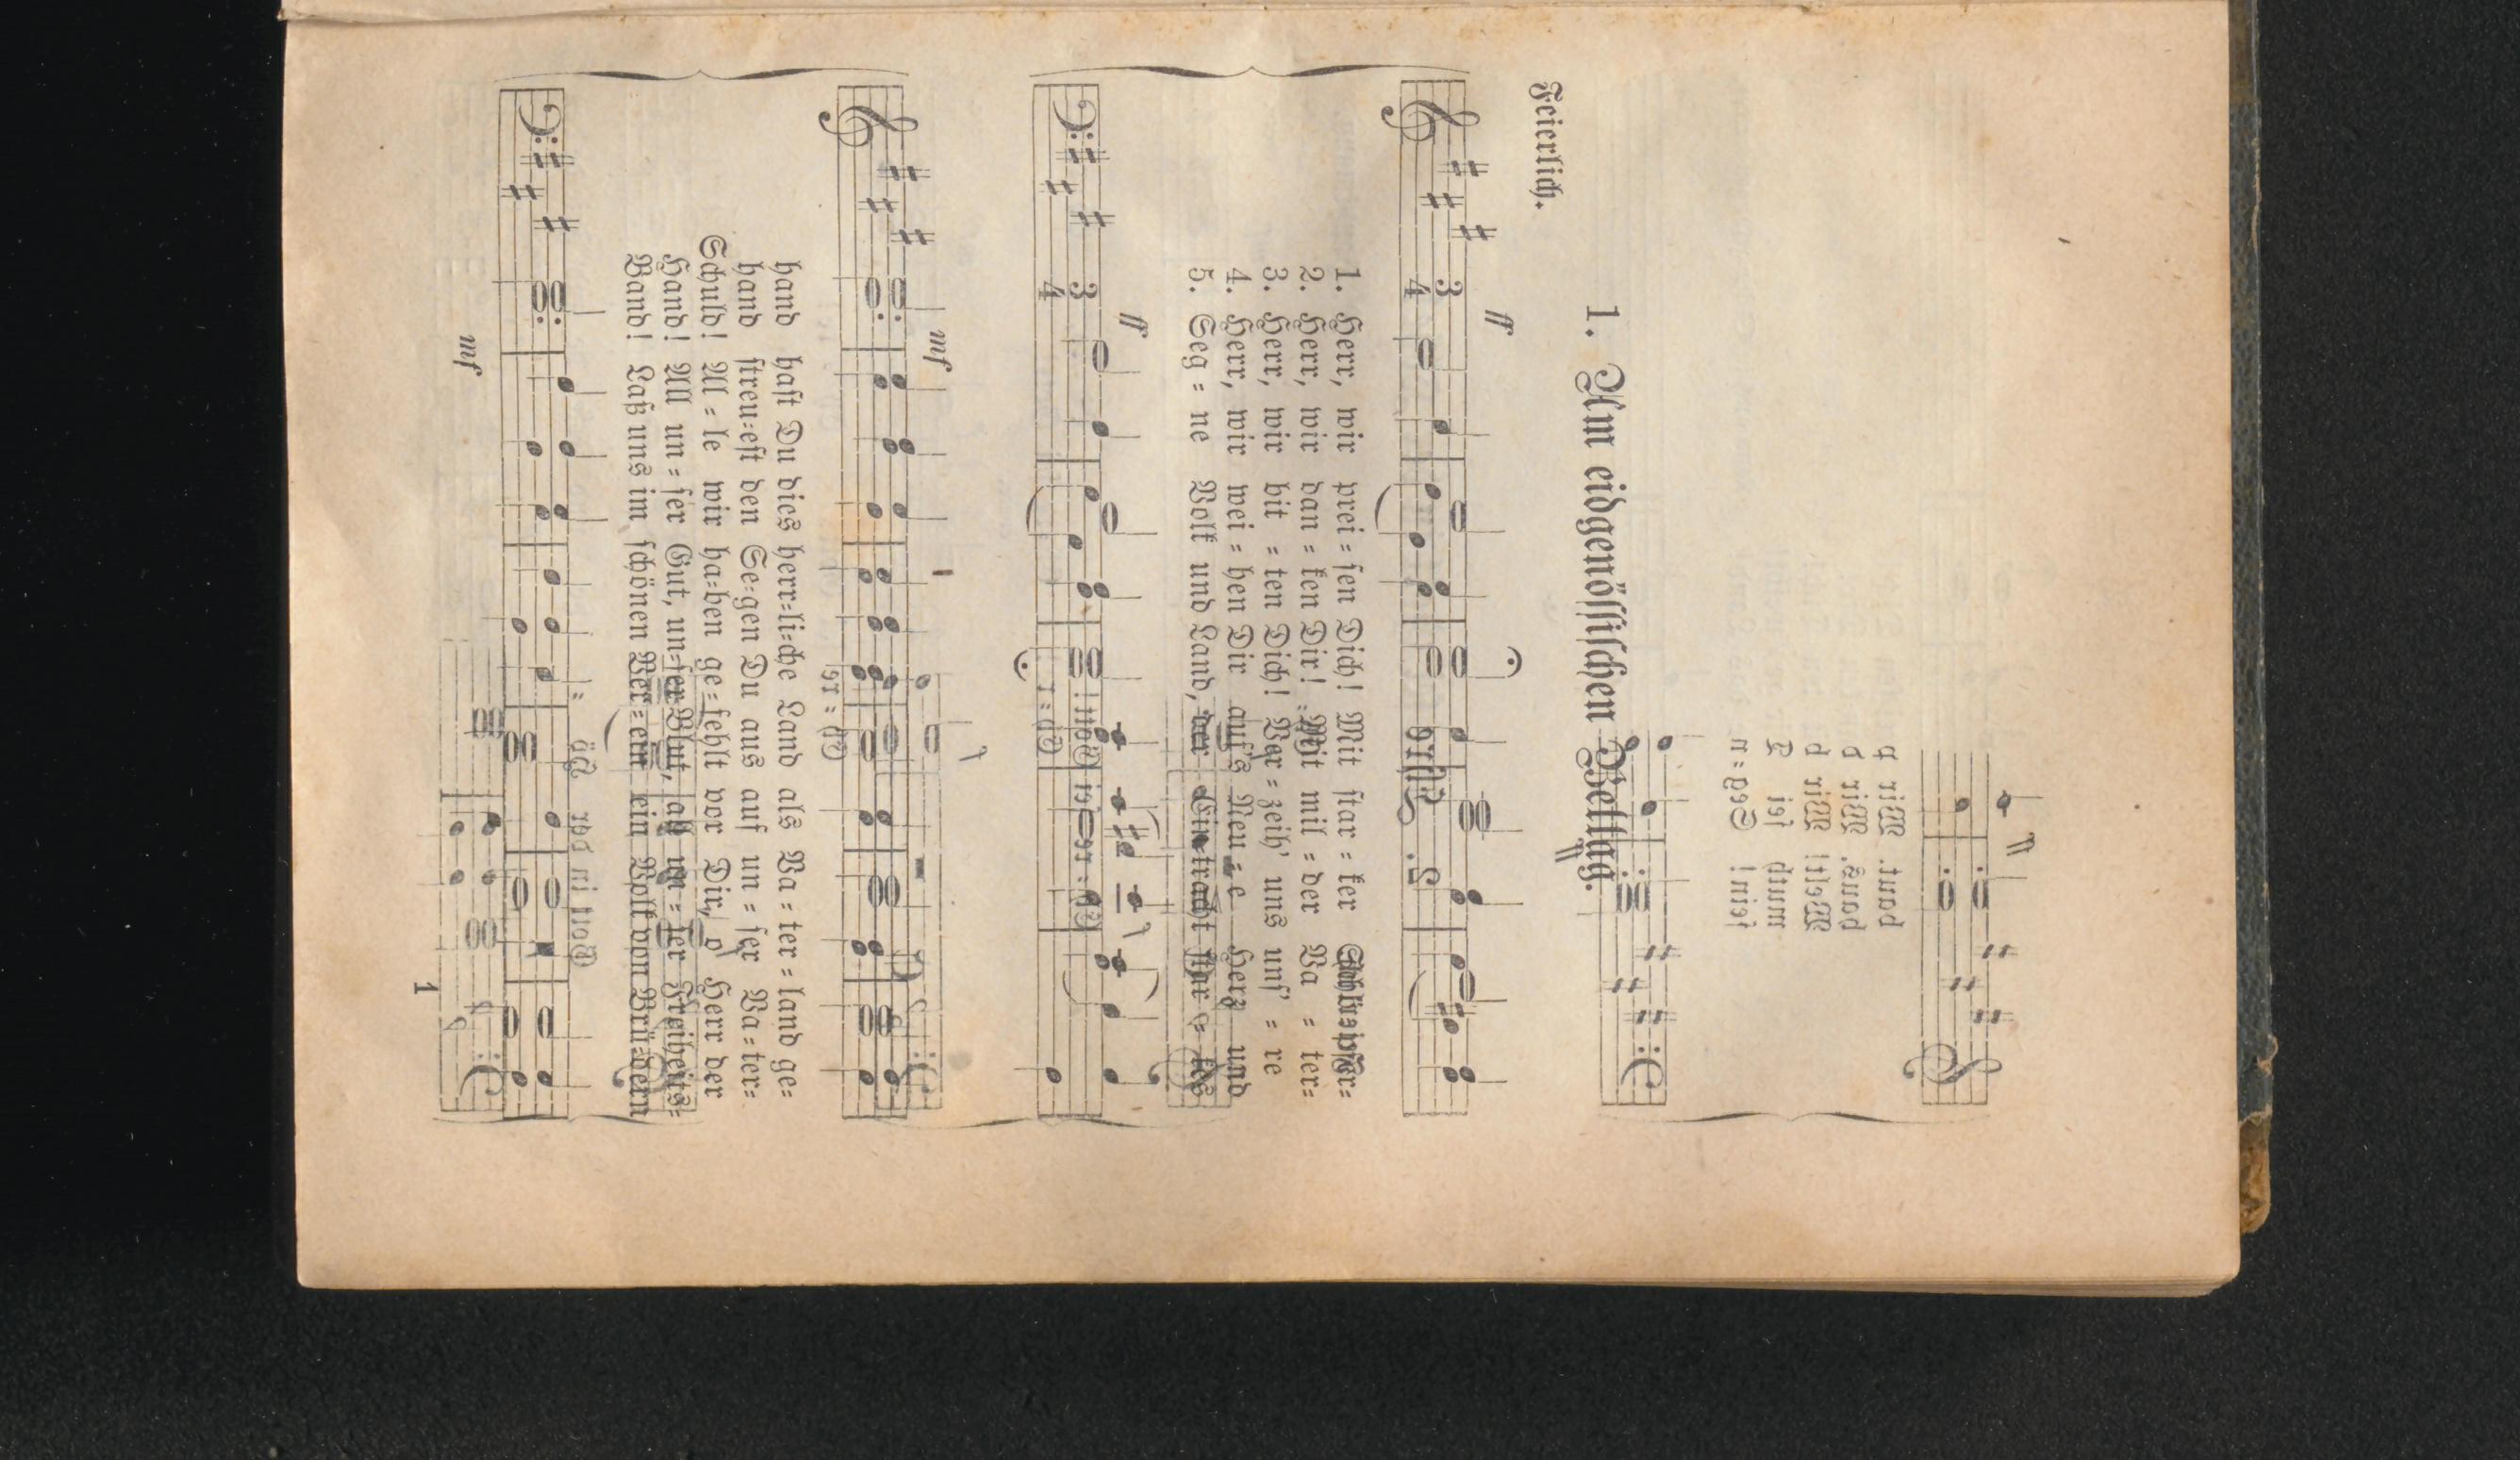 1. Am eidgenössischen Bettag.
Feierlich.
ff
1. Herr, wir prei = sen Dich! Mit star = ker
2. Herr, wir dan = ken Dir! Mit mil = der Va = ter=
3. Herr, wir bit = ten Dich! Ver = zeih' uns uns' = re
4. Herr, wir wei = hen Dir auf's Neu = e Herz und
5. Seg = ne Volk und Land, der Ein=tracht star = kes
ff
mf
hand hast Du dies herr=li=che Land als Va = ter = land ge=
hand streu=est den Se=gen Du aus auf un = ser Va=ter=
Schuld! Al = le wir ha=ben ge=fehlt vor Dir, o Herr der
Hand! All un = ser Gut, un=ser Blut, all un = ser Freiheits=
Band! Laß uns im schönen Ver=ein ein Volk von Brü=dern
mf
1